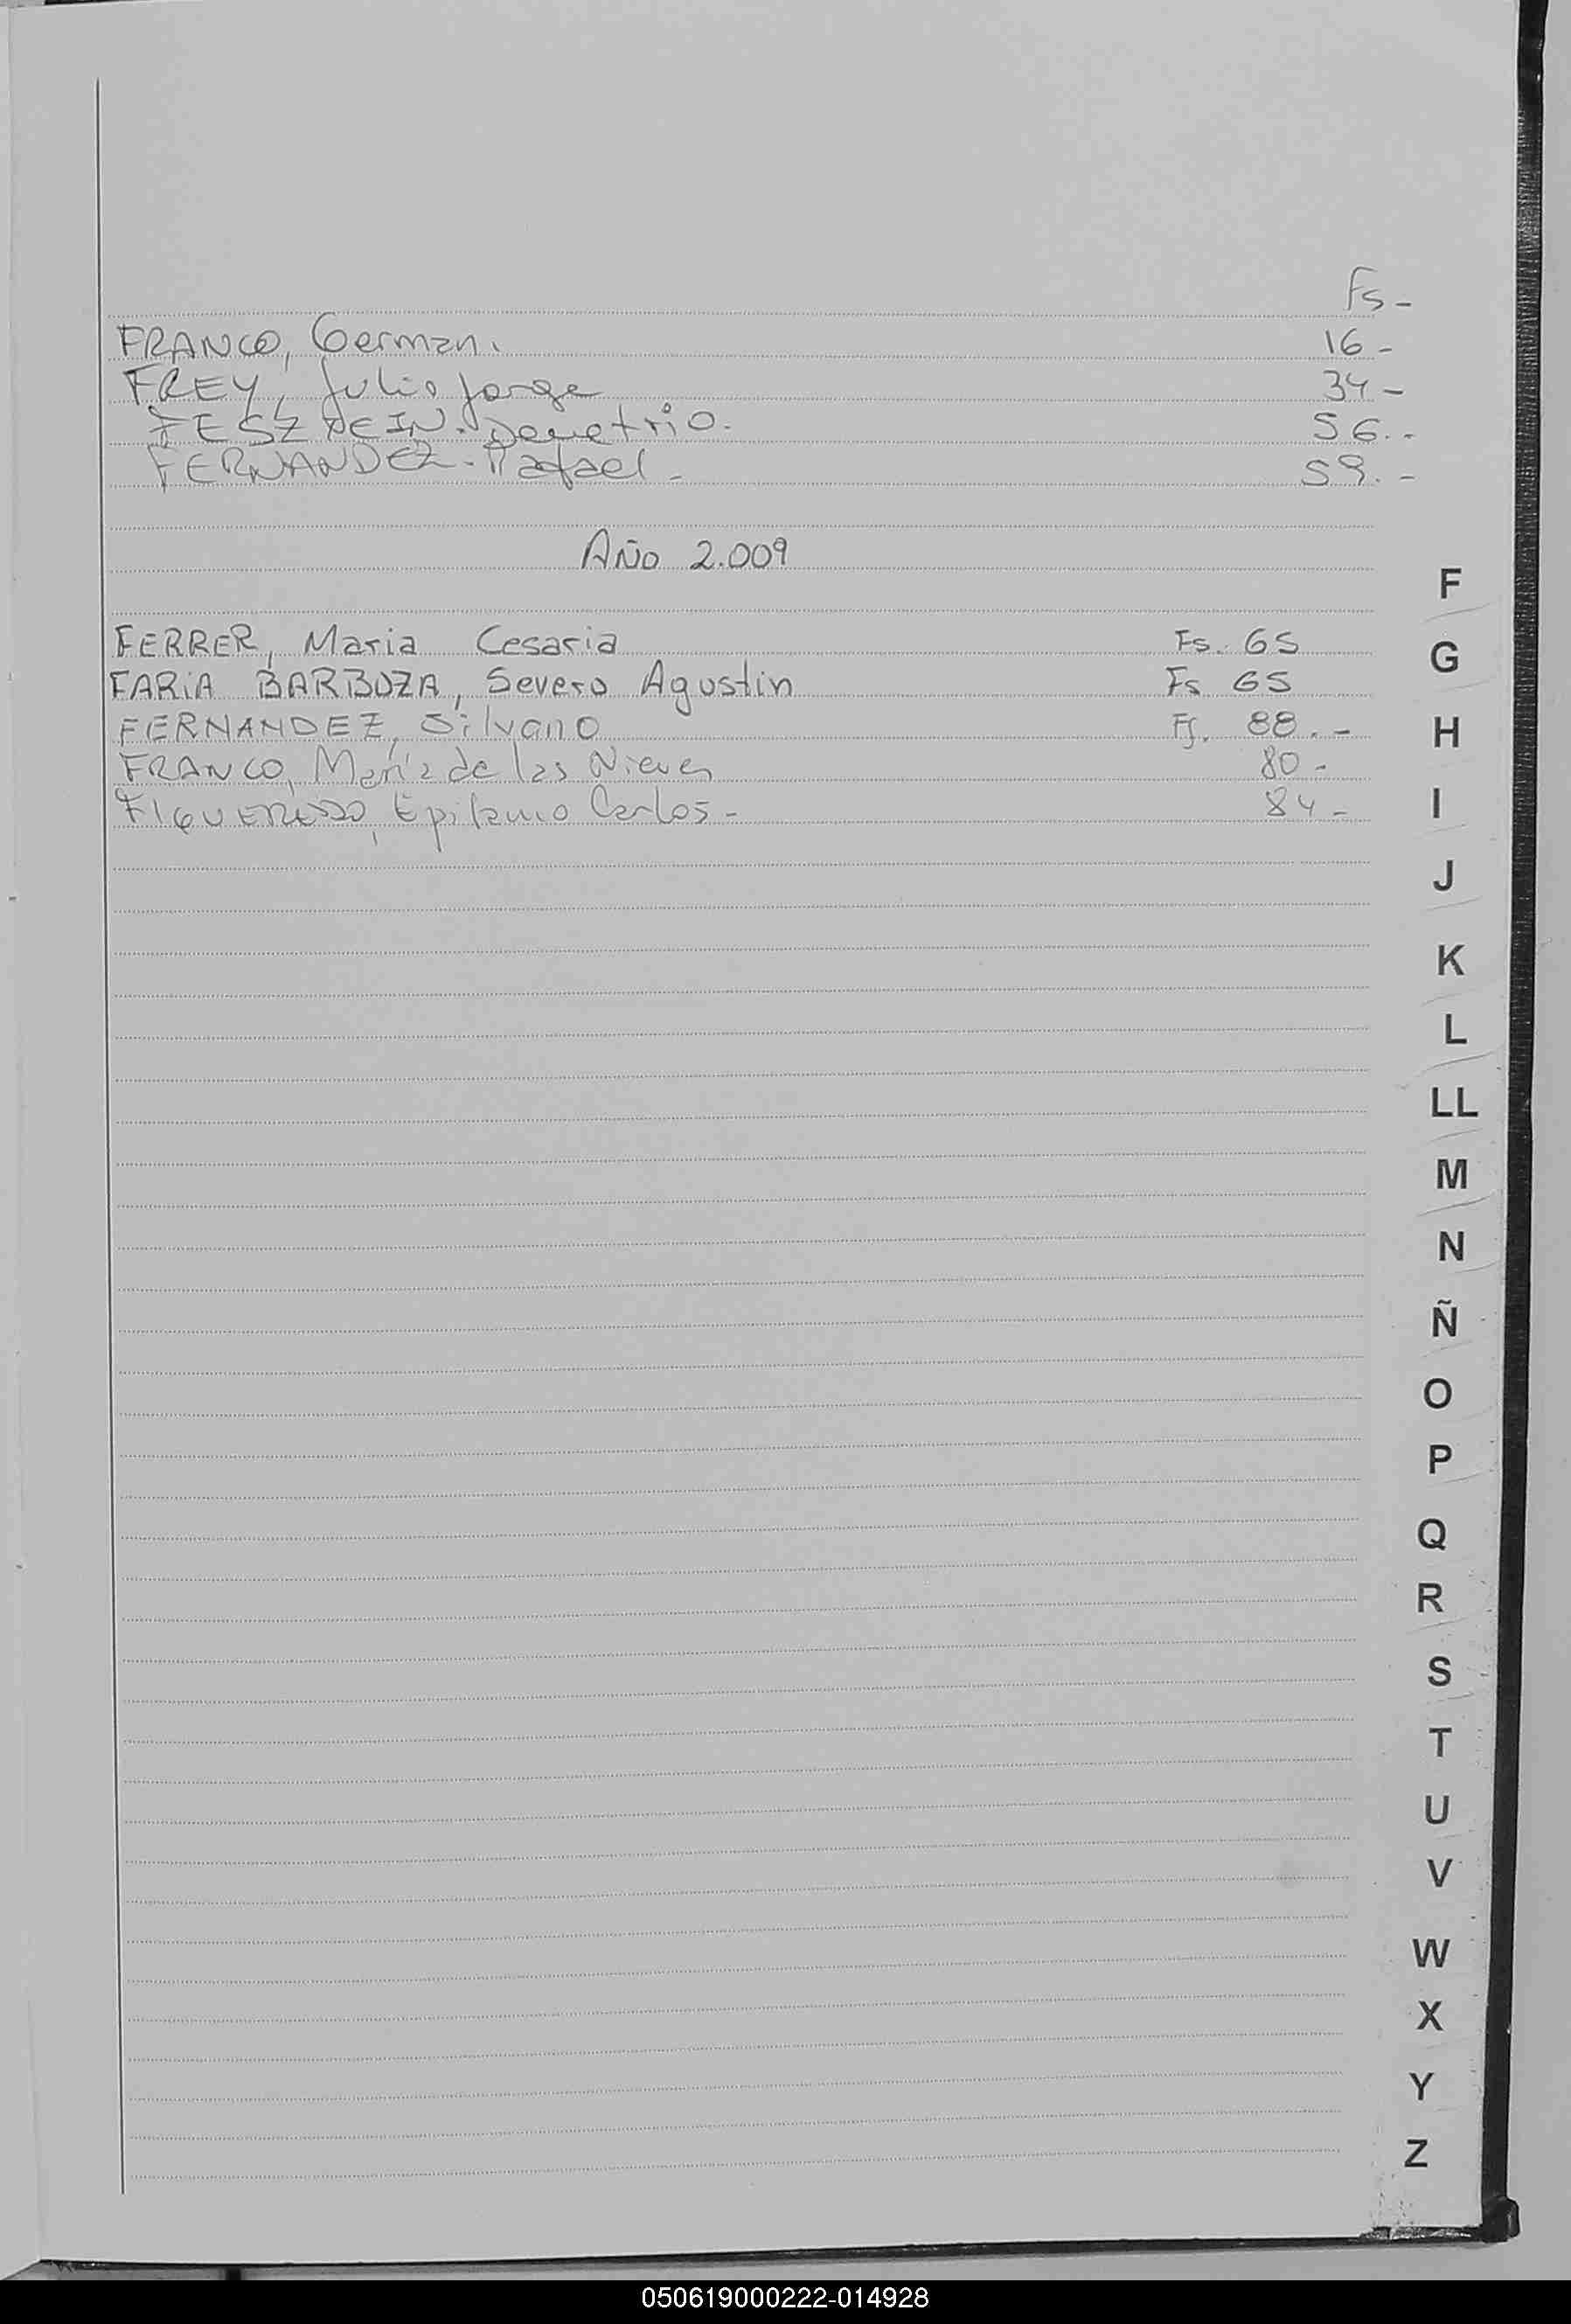 Fs-
FRANCO, German. 16-
FREY, Julio Jorge 34-
Demetrio. 56.-
FERNANDEZ. Rafael- 59.-
Año 2.009
FERRER, Maria Cesaria Fs. 65
FARiA BARBOZA, Severo Agustin Fs 65
FERNANDEZ, Silvano Fj. 88.-
FRANCO, María de las Nieves 80-
FIGUEREDO, Epifanio Carlos- 84-
F
G
H
I
J
K
L
LL
M
N
Ñ
O
P
Q
R
S
T
U
V
W
X
Y
Z
050619000222-014928